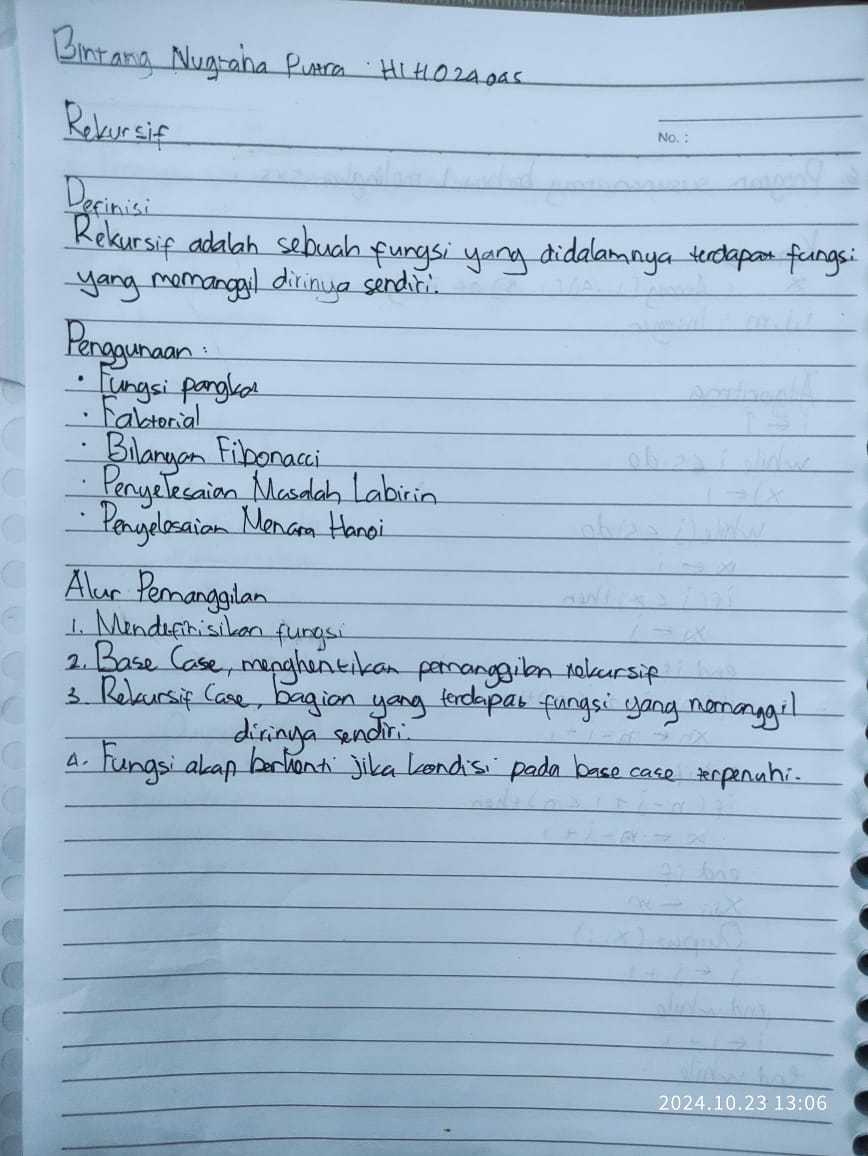 Bintang Nugraha Putra · H1H024045
Rekursif
No. :
Definisi
Rekursif adalah sebuah fungsi yang didalamnya terdapat fungsi
yang memanggil dirinya sendiri.
Penggunaan :
· Fungsi pangkat
· Faktorial
· Bilangan Fibonacci
· Penyelesaian Masalah Labirin
· Penyelesaian Menara Hanoi
Alur Pemanggilan
1. Mendefinisikan fungsi
2. Base Case, menghentikan pemanggilan rekursif
3. Rekursif Case, bagian yang terdapat fungsi yang memanggil
dirinya sendiri.
4. Fungsi akan berhenti jika kondisi pada base case terpenuhi.
2024.10.23 13:06